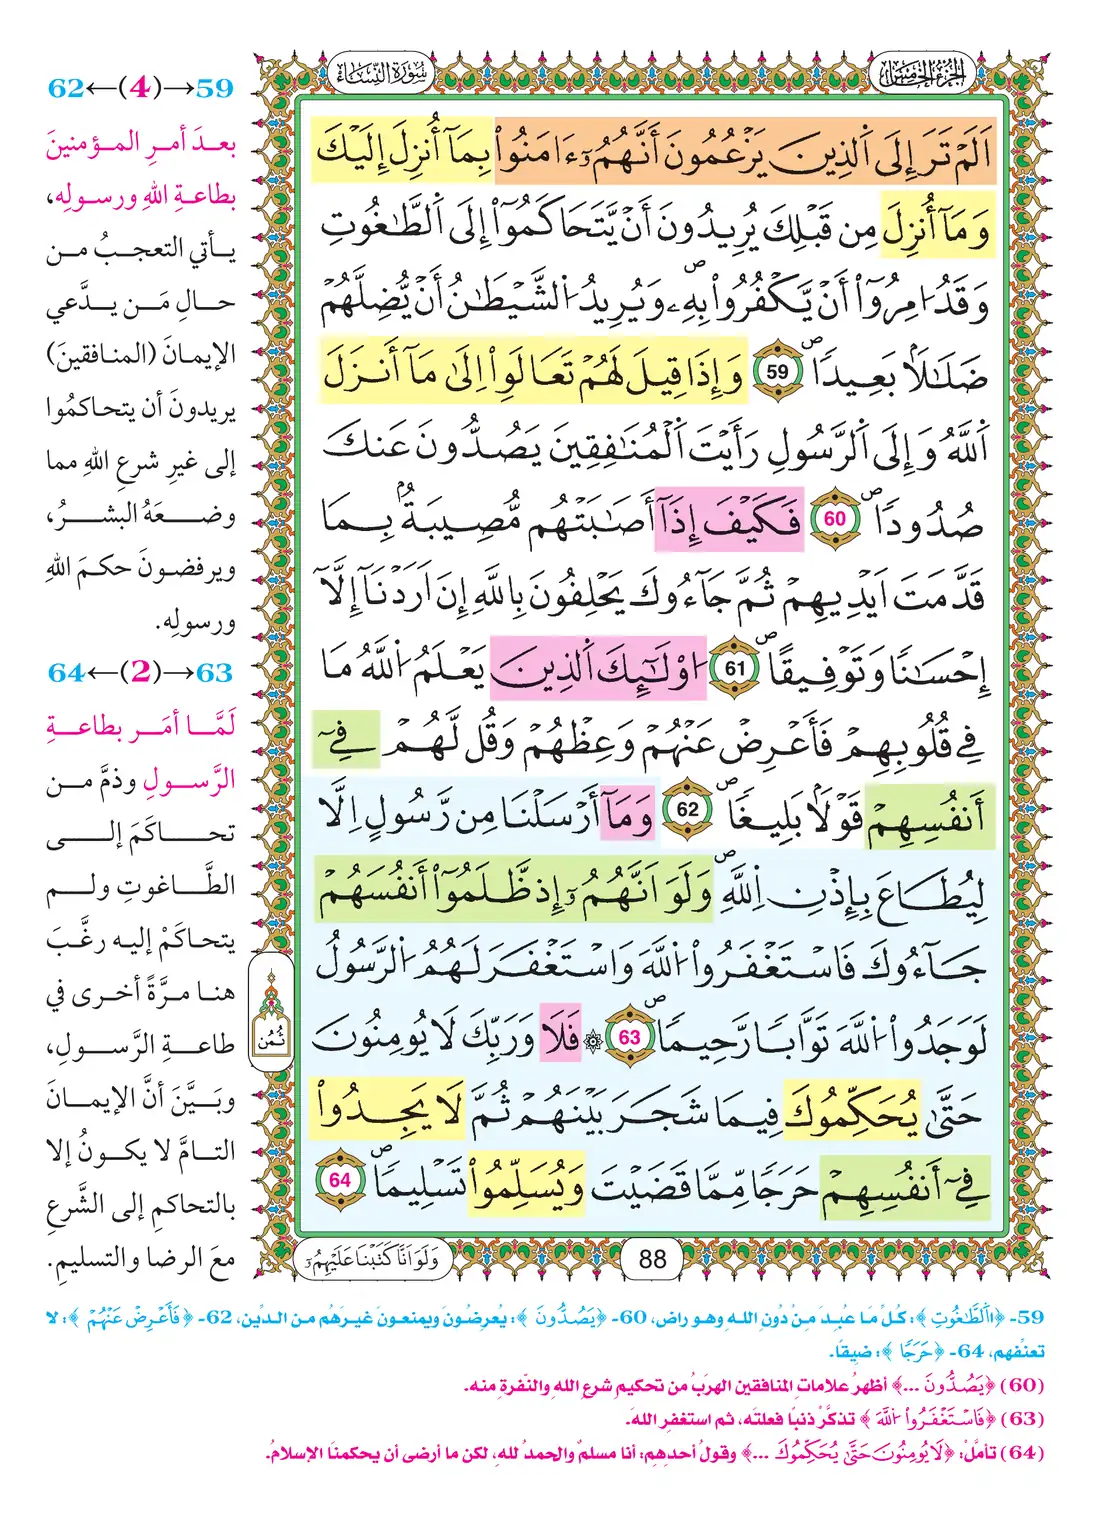 الجزء الخامس
سورة النساء
اَلَمْ تَرَ إِلَى اَلذِينَ يَزْعُمُونَ أَنَّهُمُۥٓ ءَامَنُواْ بِمَآ أُنزِلَ إِلَيْكَ
وَمَآ أُنزِلَ مِن قَبْلِكَ يُرِيدُونَ أَنْ يَّتَحَاكَمُوٓاْ إِلَى اَلطَّٰغُوتِ
وَقَدُ ا۟مِرُوٓاْ أَنْ يَّكْفُرُواْ بِهِۦ وَيُرِيدُ اُ۬لشَّيْطَٰنُ أَنْ يُّضِلَّهُمْ
ضَلَٰلَاۢ بَعِيداٗ 59 وَإِذَا قِيلَ لَهُمْ تَعَالَوِاْ اِلَىٰ مَآ أَنزَلَ
اَللَّهُ وَإِلَى اَلرَّسُولِ رَأَيْتَ اَلْمُنَٰفِقِينَ يَصُدُّونَ عَنكَ
صُدُوداٗ 60 فَكَيْفَ إِذَآ أَصَٰبَتْهُم مُّصِيبَةُۢ بِمَا
قَدَّمَتَ اَيْدِيهِمْ ثُمَّ جَآءُوكَ يَحْلِفُونَ بِاللَّهِ إِنَ اَرَدْنَآ إِلَّآ
إِحْسَٰناٗ وَتَوْفِيقاٗ 61 ا۟وْلَٰٓئِكَ اَلذِينَ يَعْلَمُ اُ۬للَّهُ مَا
فِے قُلُوبِهِمْ فَأَعْرِضْ عَنْهُمْ وَعِظْهُمْ وَقُل لَّهُمْ فِےٓ
أَنفُسِهِمْ قَوْلَاۢ بَلِيغاٗ 62 وَمَآ أَرْسَلْنَا مِن رَّسُولٍ اِلَّا
لِيُطَاعَ بِإِذْنِ اِ۬للَّهِ وَلَوَ اَنَّهُمُۥٓ إِذ ظَّلَمُوٓاْ أَنفُسَهُمْ
جَآءُوكَ فَاسْتَغْفَرُواْ اُ۬للَّهَ وَاسْتَغْفَرَ لَهُمُ اُ۬لرَّسُولُ
لَوَجَدُواْ اُ۬للَّهَ تَوَّاباٗ رَّحِيماٗ 63 ۞ فَلَا وَرَبِّكَ لَا يُومِنُونَ
حَتَّىٰ يُحَكِّمُوكَ فِيمَا شَجَرَ بَيْنَهُمْ ثُمَّ لَا يَجِدُواْ
فِےٓ أَنفُسِهِمْ حَرَجاٗ مِّمَّا قَضَيْتَ وَيُسَلِّمُواْ تَسْلِيماٗ 64
88
وَلَوَ اَنَّا كَتَبْنَا عَلَيْهِمُۥٓ
ثمن
59→(4)←62
بعدَ أمرِ المؤمنينَ
بطاعةِ اللهِ ورسولِه،
يأتي التعجبُ من
حالِ مَن يدَّعي
الإيمانَ (المنافقينَ)
يريدونَ أن يتحاكمُوا
إلى غيرِ شرعِ اللهِ مما
وضعَهُ البشرُ،
ويرفضونَ حكمَ اللهِ
ورسولِه.
63→(2)←64
لَمَّا أمَر بطاعةِ
الرَّسولِ وذمَّ من
تحاكَمَ إلى
الطَّاغوتِ ولم
يتحاكَمْ إليه رغَّبَ
هنا مرَّةً أخرى في
طاعةِ الرَّسولِ،
وبَيَّنَ أنَّ الإيمانَ
التامَّ لا يكونُ إلا
بالتحاكمِ إلى الشَّرعِ
معَ الرضا والتسليمِ.
59- ﴿اَلطَّٰغُوتِ﴾: كُلُّ مَا عُبِدَ مِنْ دُونِ اللهِ وهو راضٍ، 60- ﴿يَصُدُّونَ﴾: يُعرِضُونَ ويمنعونَ غيرَهُم من الدِّين، 62- ﴿فَأَعْرِضْ عَنْهُمْ﴾: لا
تعنِّفهم، 64- ﴿حَرَجاٗ﴾: ضيقًا.
(60) ﴿يَصُدُّونَ ...﴾ أظهرُ علاماتِ المنافقين الهربُ من تحكيمِ شرعِ اللهِ والنّفرةِ منه.
(63) ﴿فَاسْتَغْفَرُواْ اُ۬للَّهَ﴾ تذكَّرْ ذنبًا فعلتَه، ثم استغفرِ اللهَ.
(64) تأملْ: ﴿لَا يُومِنُونَ حَتَّىٰ يُحَكِّمُوكَ ...﴾ وقولُ أحدِهِم: أنا مسلمٌ والحمدُ للهِ، لكن ما أرضى أن يحكمنَا الإسلامُ.